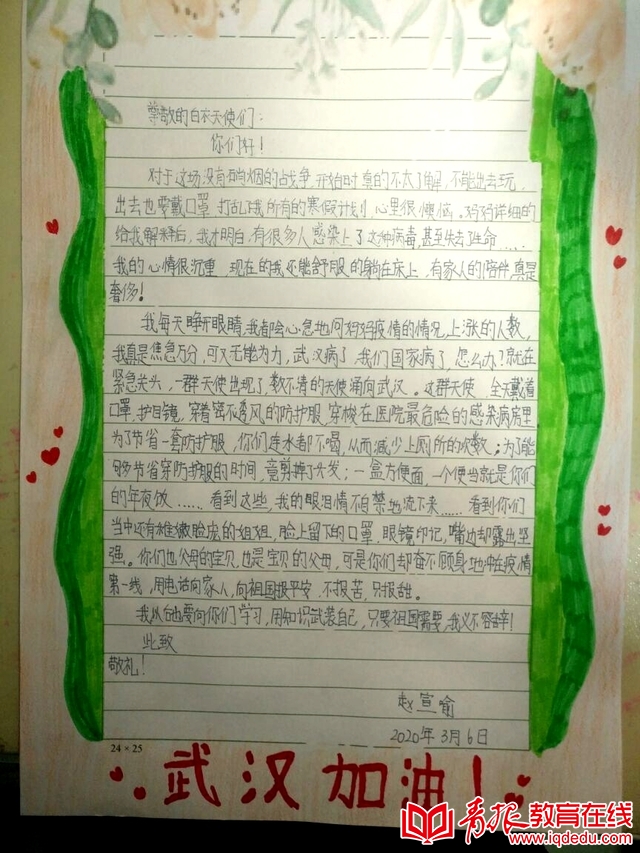 尊敬的白衣天使们：
你们好！
对于这场没有硝烟的战争，开始时真的不太了解，不能出去玩，
出去也要戴口罩，打乱我所有的寒假计划，心里很懊恼。妈妈详细的
给我解释后，我才明白，有很多人感染上了这种病毒，甚至失去生命……
我的心情很沉重，现在的我还能舒服的躺在床上，有家人的陪伴真是
奢侈！
我每天睁开眼睛，我都会心急地问妈妈疫情的情况，上涨的人数，
我真是焦急万分，可又无能为力，武汉病了，我们国家病了，怎么办？就在
紧急关头，一群天使出现了，数不清的天使涌向武汉。这群天使 全天戴着
口罩，护目镜，穿着密不透风的防护服，穿梭在医院最危险的感染病房里，
为了节省一套防护服，你们连水都不喝，从而减少上厕所的次数；为了能
够多节省穿防护服的时间，竟剪掉了头发；一盒方便面，一个便当就是你们
的年夜饭……看到这些，我的眼泪情不自禁地流下来……看到你们
当中还有稚嫩脸庞的姐姐，脸上留下的口罩，眼镜印记，嘴边却露出坚
强。你们也父母的宝贝，也是宝贝的父母，可是你们却奋不顾身地冲在疫情
第一线，用电话向家人，向祖国报平安，不报苦，只报甜。
我以后也要向你们学习，用知识武装自己，只要祖国需要，我义不容辞！
此致
敬礼！
赵宣喻
2020年3月6日
24×25
武汉加油！
青报教育在线
www.iqdedu.com